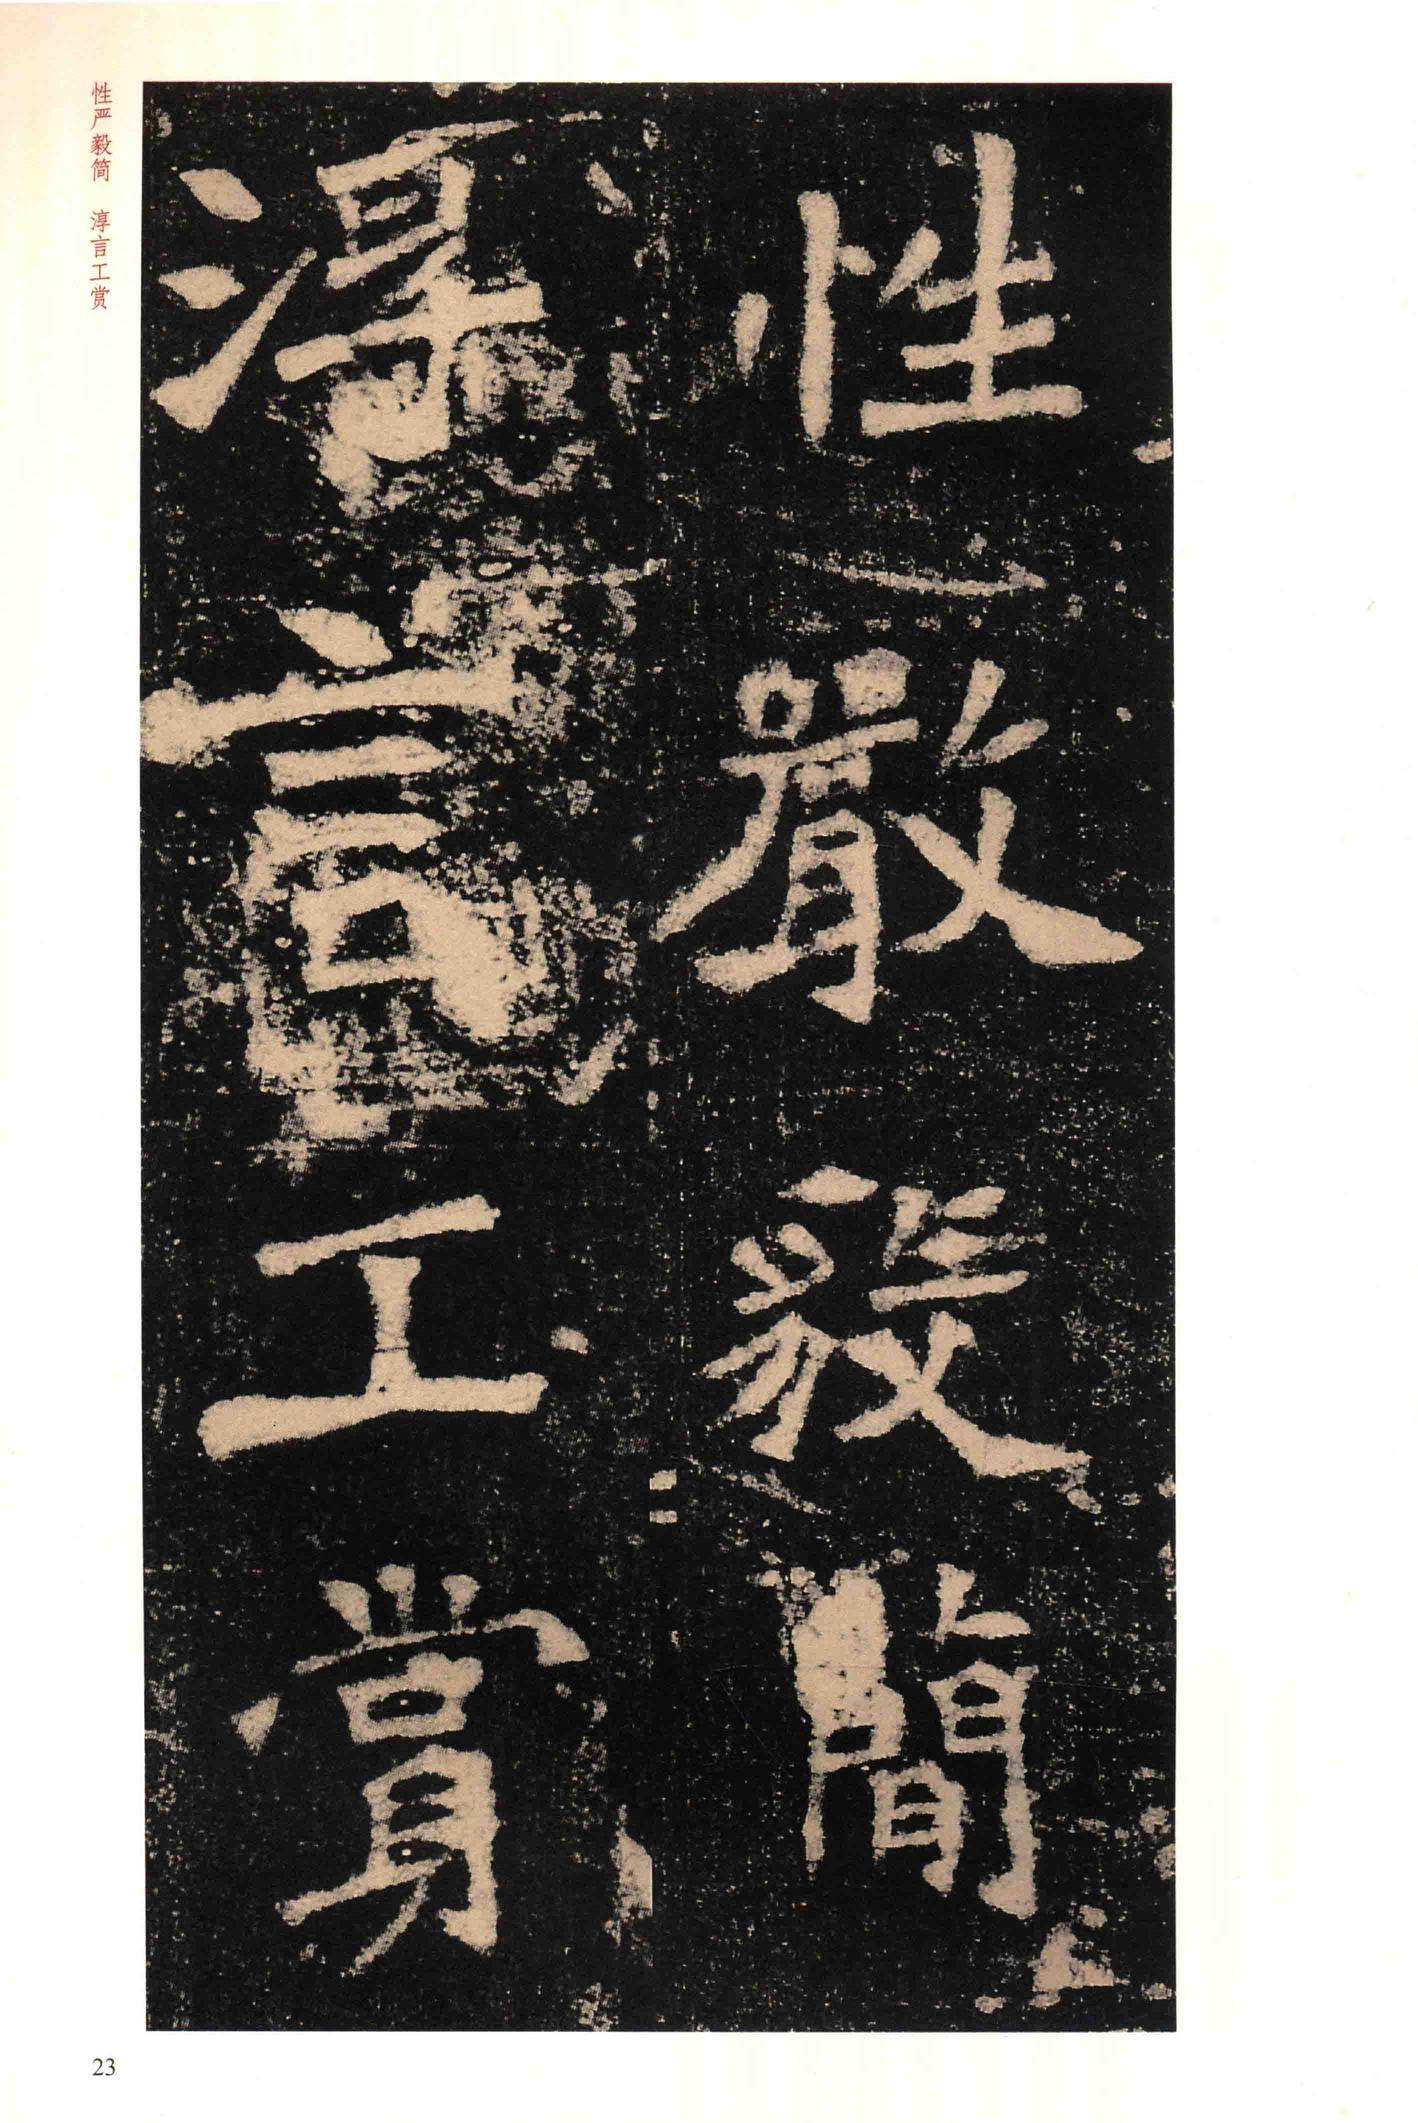 性嚴毅簡
淳言工賞
性严毅简 淳言工赏
23